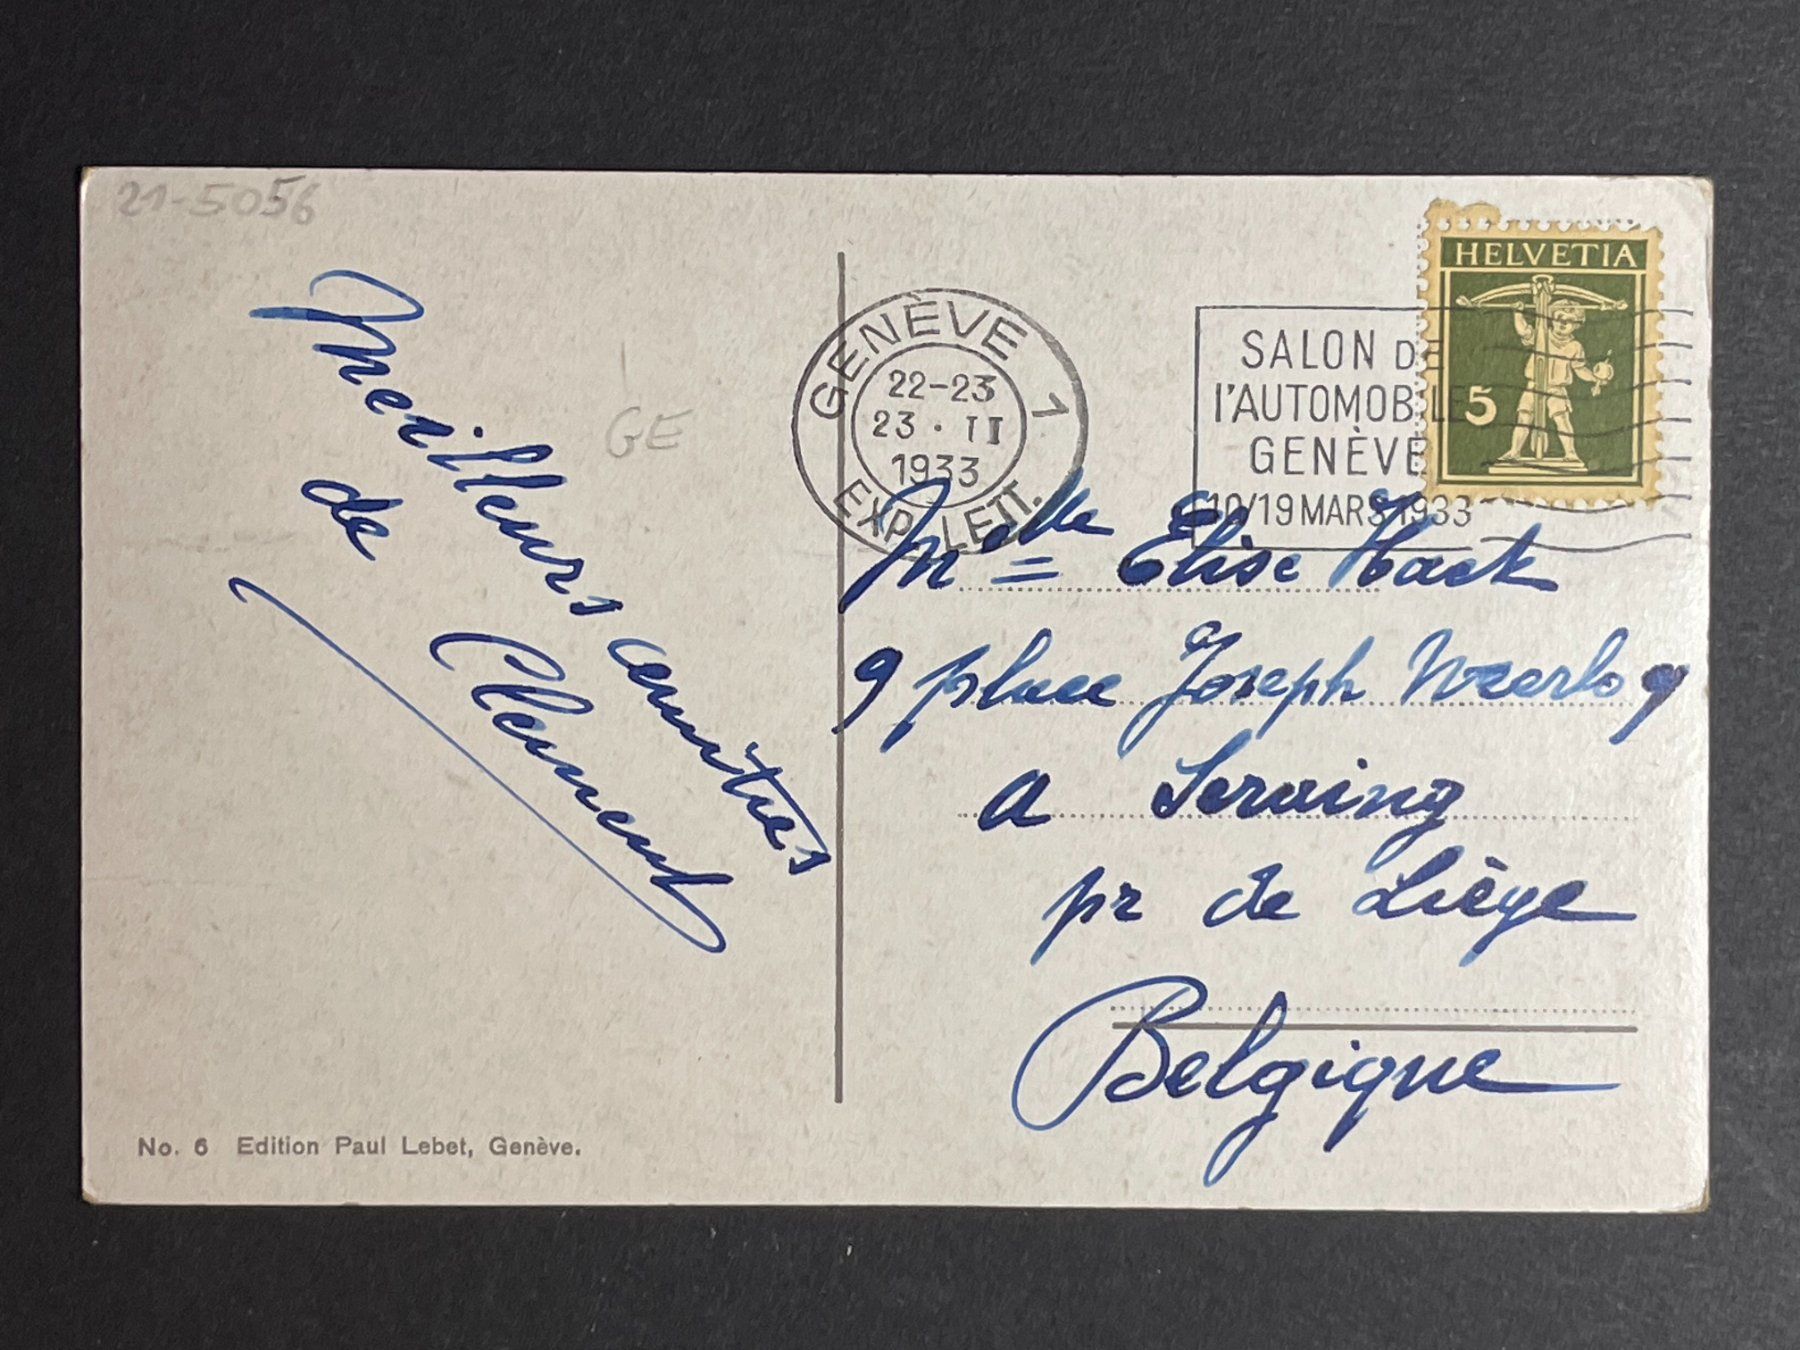 21-5056
HELVETIA
5
GENÈVE 1
22-23
23 · II
1933
EXP. LETT.
SALON DE
l'AUTOMOBILE
GENÈVE
10/19 MARS 1933
GE
Meilleurs amitiés
de
Clement
Melle Elise Hack
9 place Joseph
a Seraing
pr de Liège
Belgique
No. 6 Edition Paul Lebet, Genève.